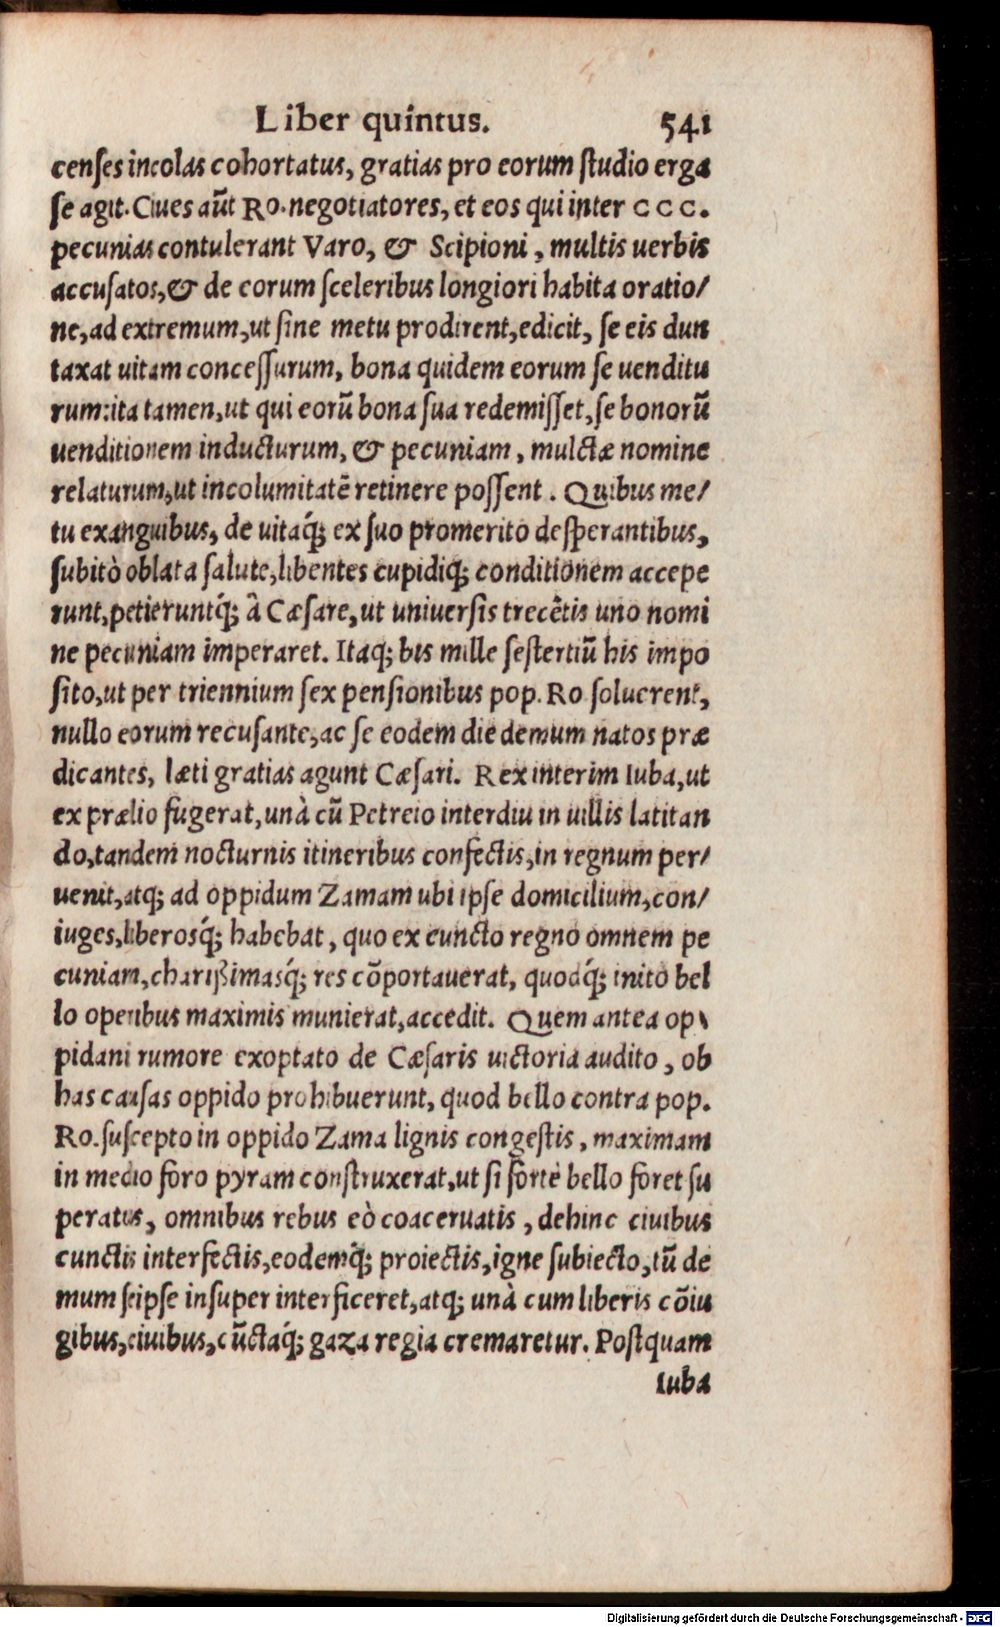 Liber quintus. 541
censes incolas cohortatus, gratias pro eorum studio erga
se agit. Ciues aũt Ro. negotiatores, et eos qui inter CCC.
pecunias contulerant Varo, & Scipioni, multis uerbis
accusatos, & de eorum sceleribus longiori habita oratio/
ne, ad extremum, ut sine metu prodirent, edicit, se eis dun
taxat uitam concessurum, bona quidem eorum se uenditu
rum: ita tamen, ut qui eorũ bona sua redemisset, se bonorũ
uenditionem inducturum, & pecuniam, mulctæ nomine
relaturum, ut incolumitatẽ retinere possent. Quibus me/
tu exanguibus, de uitaq́; ex suo promerito desperantibus,
subitò oblata salute, libentes cupidiq; conditionem accepe
runt, petieruntq́; â Cæsare, ut uniuersis trecẽtis uno nomi
ne pecuniam imperaret. Itaq; bis mille sestertiũ his impo
sito, ut per triennium sex pensionibus pop. Ro soluerent,
nullo eorum recusante, ac se eodem die demum natos præ
dicantes, læti gratias agunt Cæsari. Rex interim Iuba, ut
ex prælio fugerat, unà cũ Petreio interdiu in uillis latitan
do, tandem nocturnis itineribus confectis, in regnum per/
uenit, atq; ad oppidum Zamam ubi ipse domicilium, con/
iuges, liberosq́; habebat, quo ex cuncto regno omnem pe
cuniam, charißimasq́; res cõportauerat, quodq́; inito bel
lo operibus maximis munierat, accedit. Quem antea op\
pidani rumore exoptato de Cæsaris uictoria audito, ob
has causas oppido prohibuerunt, quod bello contra pop.
Ro. suscepto in oppido Zama lignis congestis, maximam
in medio foro pyram construxerat, ut si fortè bello foret su
peratus, omnibus rebus eò coaceruatis, dehinc ciuibus
cunctis interfectis, eodemq́; proiectis, igne subiecto, tũ de
mum seipse insuper interficeret, atq; unà cum liberis cõiu
gibus, ciuibus, cũctaq́; gaza regia cremaretur. Postquam
Iuba
Digitalisierung gefördert durch die Deutsche Forschungsgemeinschaft - DFG